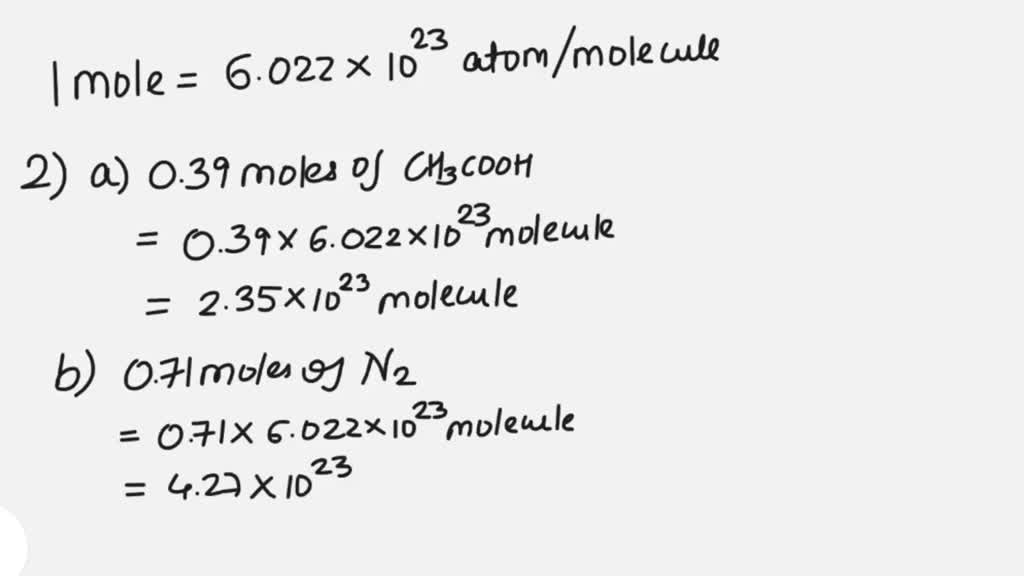 1 mole = 6.022 × 10²³ atom/molecule
2) a) 0.39 moles of CH₃COOH
= 0.39 × 6.022 × 10²³ molecule
= 2.35 × 10²³ molecule
b) 0.71 moles of N₂
= 0.71 × 6.022 × 10²³ molecule
= 4.27 × 10²³